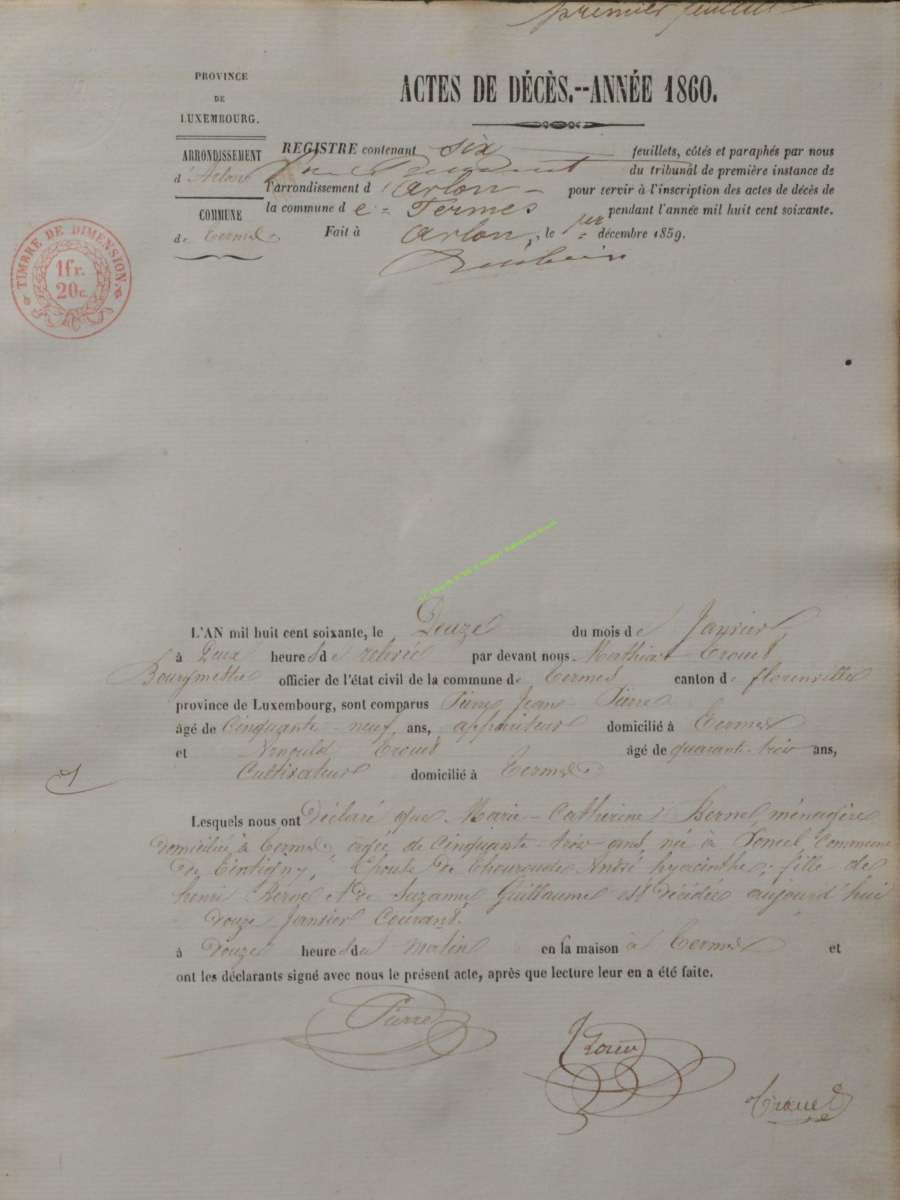 premier feuillet
PROVINCE
DE
LUXEMBOURG.
ARRONDISSEMENT
d'Arlon
COMMUNE
de Termes
TIMBRE DE DIMENSION.
1 fr.
20 c.
ACTES DE DÉCÈS.--ANNÉE 1860.
REGISTRE contenant six feuillets, côtés et paraphés par nous
du tribunal de première instance de
l'arrondissement d'Arlon pour servir à l'inscription des actes de décès de
la commune de Termes pendant l'année mil huit cent soixante.
Fait à Arlon, le 1er décembre 1859.
L'AN mil huit cent soixante, le Douze du mois de Janvier
à Deux heures de relevée par devant nous Mathias Trouet
Bourgmestre officier de l'état civil de la commune de Termes canton de florenville
province de Luxembourg, sont comparus Pierre Jean Pierre
âgé de Cinquante neuf ans, appariteur domicilié à Termes
et Trouet âgé de quarante trois ans,
Cultivateur domicilié à Termes
Lesquels nous ont Déclaré que Marie-Catherine Berne ménagère
domiciliée à Termes agée de Cinquante-trois ans, née à Commune
De Tintigny, Epouse De André hyacinthe, fille de
henri Berne et de Suzanne Guillaume est Décédée aujourd'hui
Douze Janvier Courant
à Douze heures du matin en sa maison à Termes et
ont les déclarants signé avec nous le présent acte, après que lecture leur en a été faite.
Pierre
Trouet